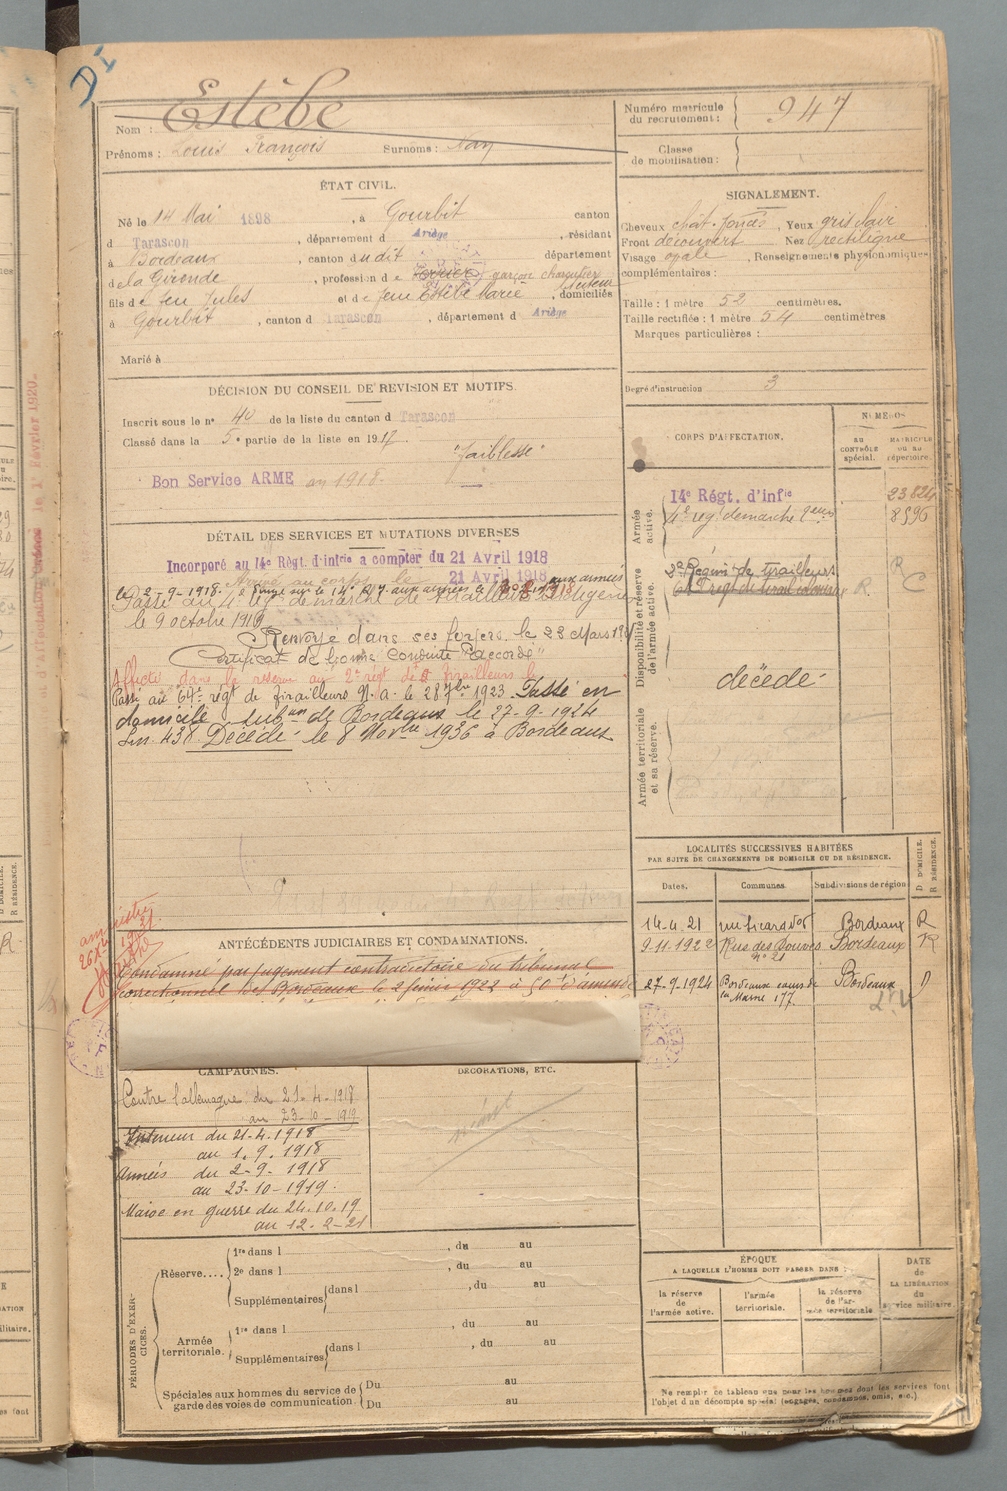 DI
Nom : Estèbe
Prénoms : Louis François Surnoms :
Numéro matricule du recrutement : 947
Classe de mobilisation :
ÉTAT CIVIL.
Né le 14 Mai 1898, à Gourbit canton
d Tarascon, département d Ariège, résidant
à Bordeaux, canton dudit département
de la Gironde, profession de garçon charcutier
fils de feu Jules et de feue Estèbe Marie, domiciliés
à Gourbit, canton d Tarascon, département d Ariège
Marié à
SIGNALEMENT.
Cheveux chât. foncés, Yeux gris clair
Front découvert Nez rectiligne
Visage ovale, Renseignements physionomiques
complémentaires :
Taille : 1 mètre 52 centimètres.
Taille rectifiée : 1 mètre 54 centimètres
Marques particulières :
Degré d'instruction 3
DÉCISION DU CONSEIL DE REVISION ET MOTIFS.
Inscrit sous le n° 40 de la liste du canton d Tarascon
Classé dans la 5e partie de la liste en 1917.
"Faiblesse"
Bon Service ARMÉ en 1918.
DÉTAIL DES SERVICES ET MUTATIONS DIVERSES
Incorporé au 14e Régt. d'infie a compter du 21 Avril 1918
Arrivé au corps le 21 Avril 1918
aux armées
le 2-9-1918.
Passé au 4e rég de marche de Tirailleurs indigènes
le 9 octobre 1919
Renvoyé dans ses foyers le 22 Mars
Certificat de bonne conduite "Accordé"
Affecté dans la réserve au 2e régt de Tirailleurs le
Passé au 64e régt de Tirailleurs N.A. le 28 7bre 1923. Passé en
domicile subon de Bordeaux le 27-9-1924
Lin 438 Décédé le 8 Novbre 1936 à Bordeaux
CORPS D'AFFECTATION.
NUMÉROS
AU CONTRÔLE spécial.
MATRICULE ou au répertoire.
Armée active.
14e Régt. d'infie 23824
4e rég de marche 8596
Disponibilité et réserve de l'armée active.
2e Régim. de tirailleurs R
R. C
décédé
Armée territoriale et sa réserve.
LOCALITÉS SUCCESSIVES HABITÉES
PAR SUITE DE CHANGEMENTS DE DOMICILE OU DE RÉSIDENCE.
Dates. Communes. Subdivisions de région D DOMICILE. R RÉSIDENCE.
14-4-21 Bordeaux R
9.11.1922 Rue des Douves n° 21 Bordeaux R
27-9-1924 Bordeaux cours de la Marne 177 Bordeaux D
amnistié
ANTÉCÉDENTS JUDICIAIRES ET CONDAMNATIONS.
Condamné par jugement contradictoire du tribunal
correctionnel de Bordeaux le 2 février 1922 à 50 f d'amende
CAMPAGNES.
Contre l'allemagne du 21-4-1918
au 23-10-1919
Intérieur du 21-4-1918
au 1.9.1918
Armées du 2-9-1918
au 23-10-1919.
Maroc en guerre du 24.10.19
au 12-2-21
DÉCORATIONS, ETC.
néant
PÉRIODES D'EXERCICES.
Réserve....
1re dans l , du au
2e dans l , du au
Supplémentaires dans l , du au
Armée territoriale.
1re dans l , du au
Supplémentaires dans l , du au
Spéciales aux hommes du service de garde des voies de communication.
Du au
Du au
ÉPOQUE
A LAQUELLE L'HOMME DOIT PASSER DANS :
la réserve de l'armée active.
l'armée territoriale.
la réserve de l'armée territoriale
DATE de LA LIBÉRATION du service militaire.
Ne remplir ce tableau que pour les hommes dont les services font
l'objet d'un décompte spécial (engagés, condamnés, omis, etc.)